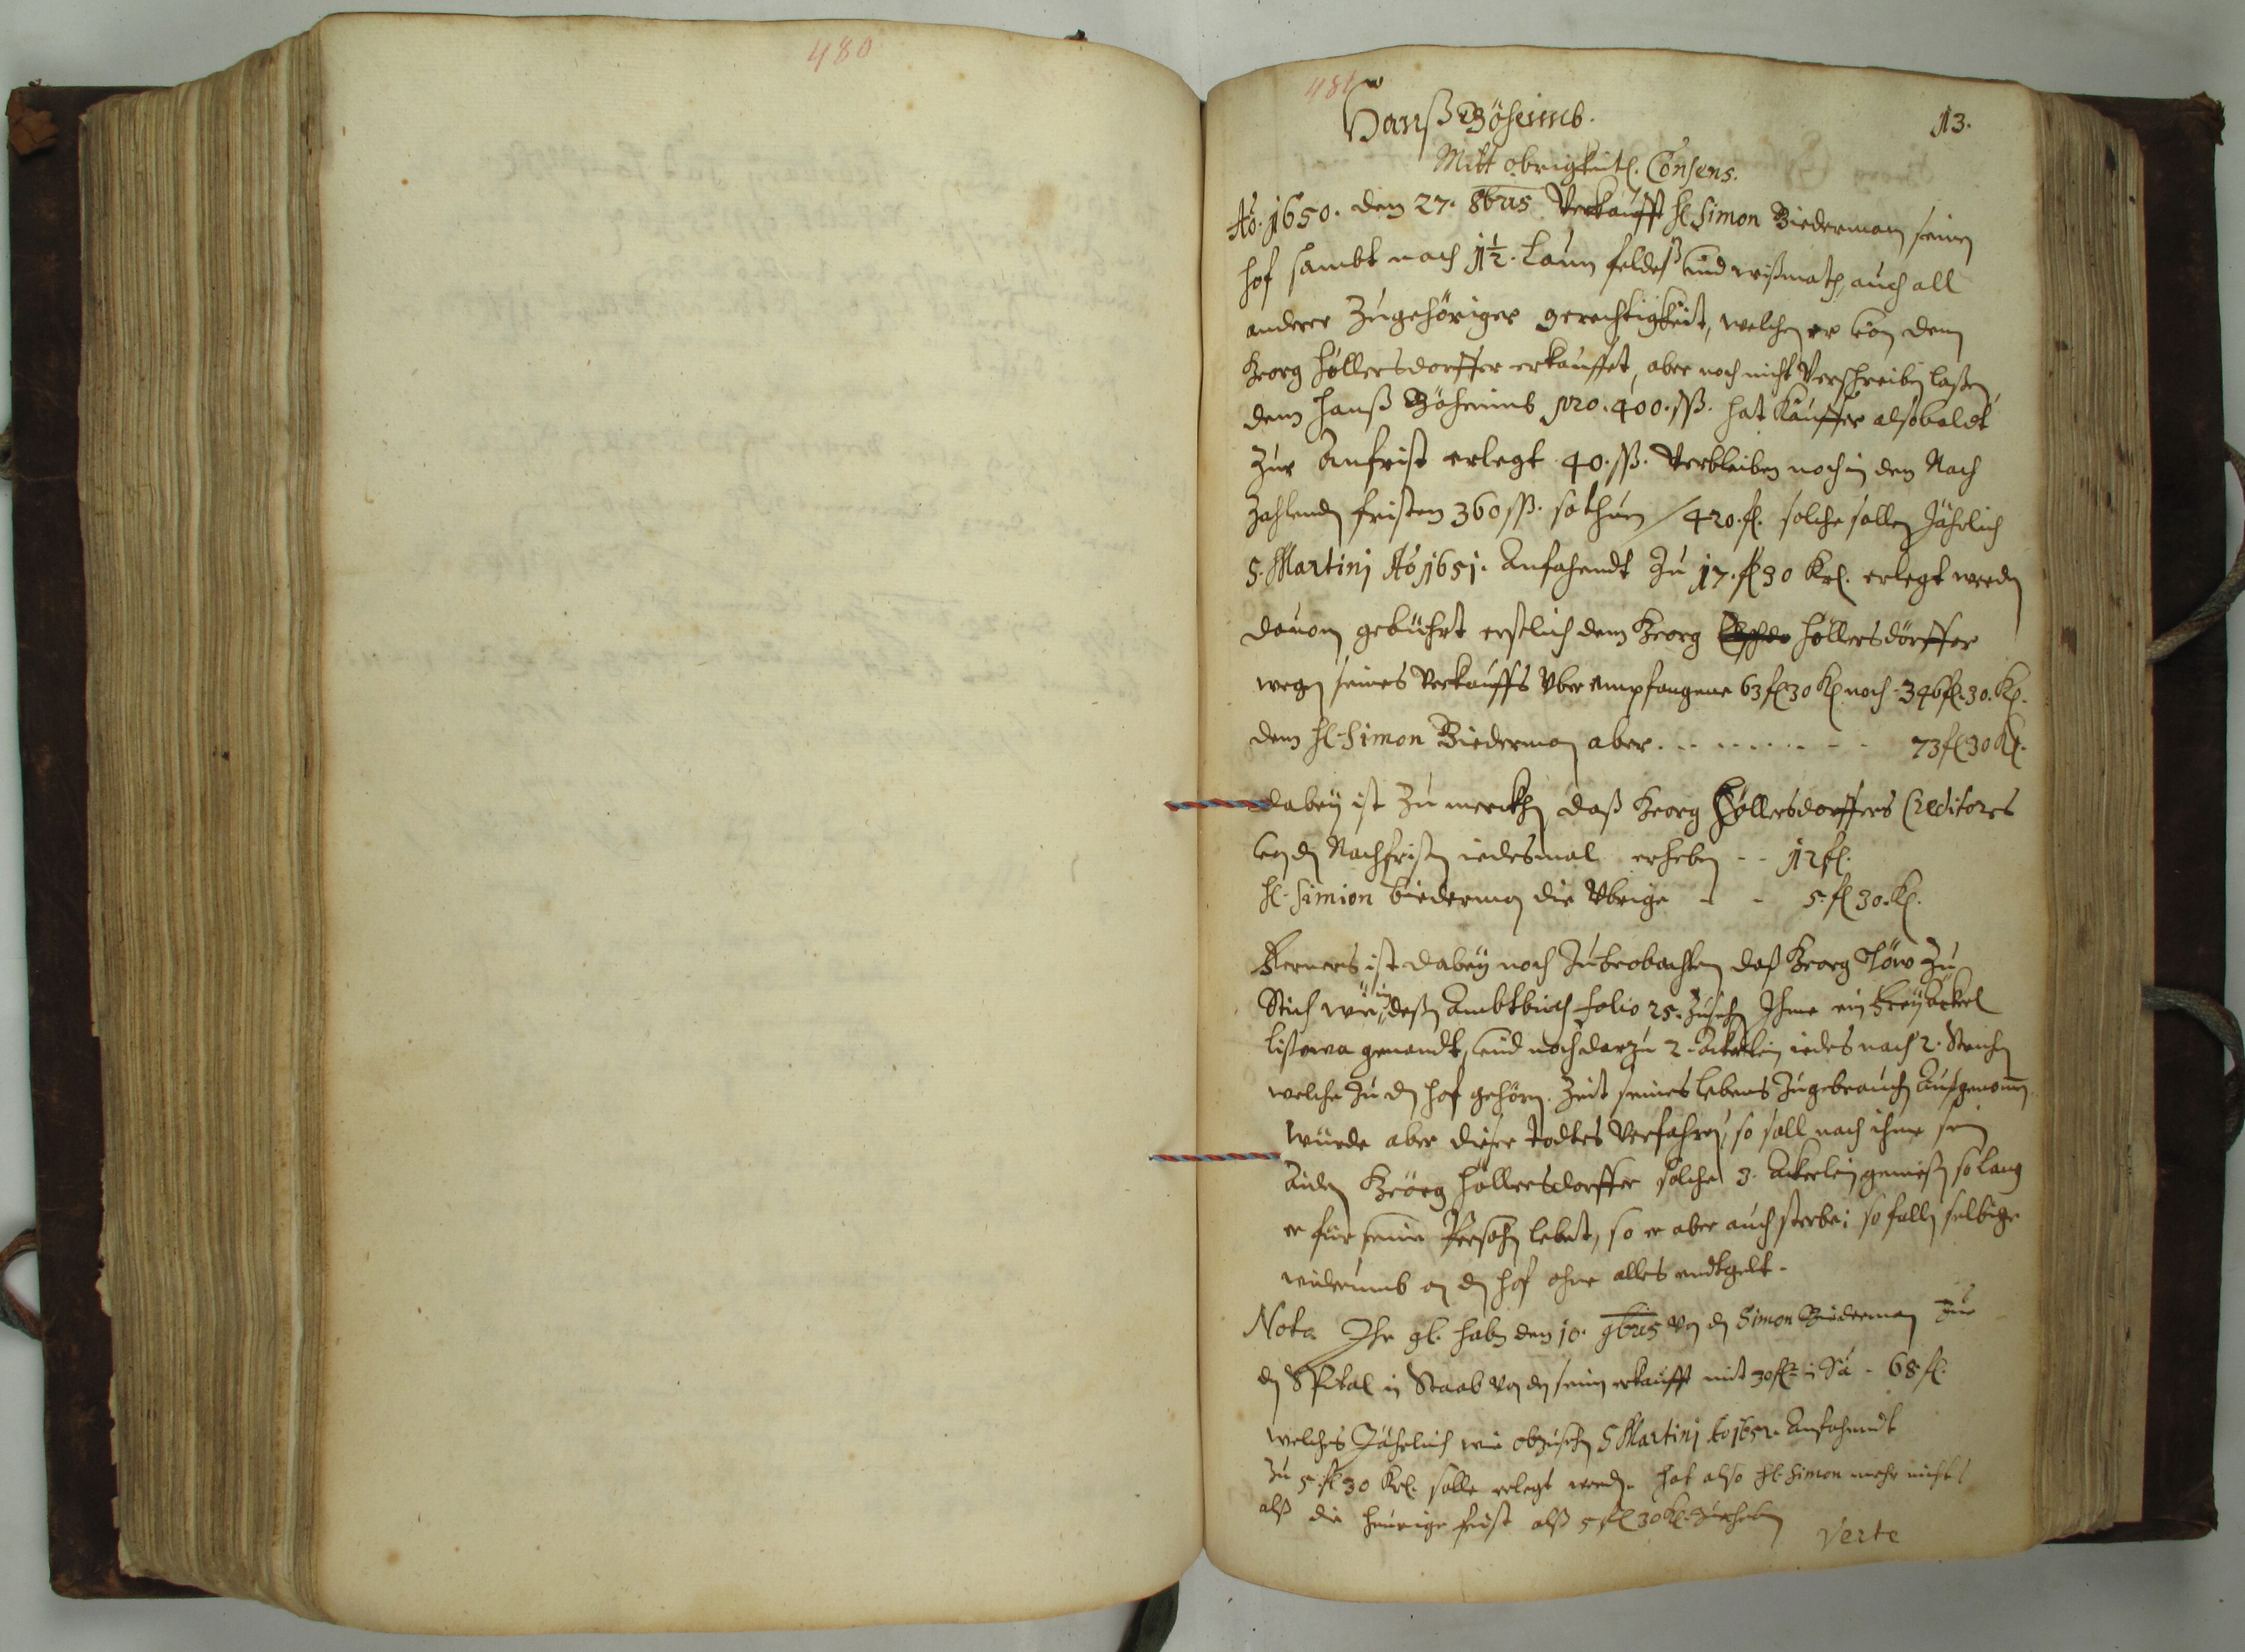 480
481
13.
Hanß Böheimb.
Mitt obrigkeitl. Consens.
Ao. 1650. den 27. 8bris Verkaufft H. Simon Biederman seinen
hof sambt nach 1½. Laun feldeß und wißmath, auch all
anderer Zugehöriger gerechtigkeit, welchen er von dem
Georg Höllersdorffer erkauffet, aber noch nicht Verschreiben laßen,
dem Hanß Böheimb pro. 400. ſſ. hat Käuffer alsobaldt
zur Anfrist erlegt 40. ſſ. Verbleiben noch in den Nach
Zahlenden fristen 360 ſſ. so thun / 420. fl. solche sollen Jährlich
S. Martinj Ao 1651. Anfahendt zu 17. fl 30 Krl. erlegt werden
dauon gebührt erstlich dem Georg Höllersdörffer
wegen seines Verkauffs Vber empfangene 63 fl 30 Kl noch - 346 fl. 30. Kl.
dem H. Simon Biederman aber. - - - - - - - - 73 fl 30 Kl.
dabey ist zu merckhen daß Georg Höllersdorffers Creditores
von den Nachfristen iedesmal erheben - - 12 fl.
H. Simion biederman die Vbrige - - 5. fl 30. Kl.
Ferners ist dabey noch Zu beobachten daß Georg Löw Zu
Stich wie in deßen Ambtbuch folio 25. Zusehen Ihme ein Freyäckerl
listowa genandt, und noch darzu 2. Äckerlein iedes nach 2. Strichen
welche Zu den hof gehören. Zeit seines lebens Zugebrauchen Außgenomen
würde aber dieser todtes Verfahren, so soll nach ihme sein
Aiden Georg Höllersdorffer solche 3. Äckerlein genießen so lang
er für seine Persohn lebet, so er aber auch sterbe; so fallen selbige
widerumb an den hof ohne alles endtgelt.
Nota Ihr gl. haben den 10. 9bris Von den Simon Biederman Zue
den Spital in Staab Von den seinen erkaufft mit 30 fl in Sa - 68 fl.
welches Jährlich wie obzusehen S Martinj Ao 1652. Anfahendt
Zu 5. fl 30 Krl. solle erlegt werden. hat also H. Simon mehr nichts
alß die heurige frist alß 5 fl 30 Kl. Zuerheben
Verte